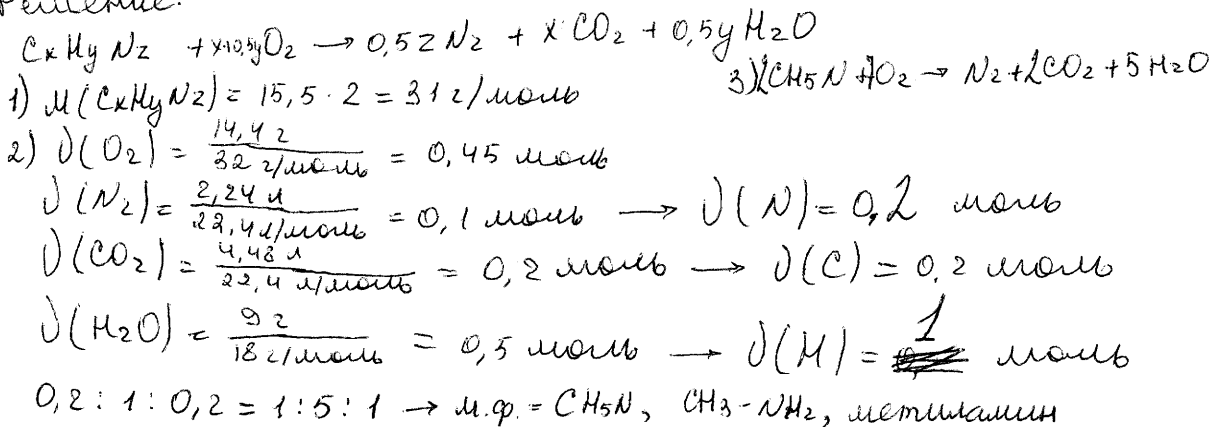 Решение:
CxHyNz + x+0,5yO2 → 0,5zN2 + xCO2 + 0,5yH2O
3) 2CH5N + O2 → N2 + 2CO2 + 5H2O
1) M(CxHyNz) = 15,5 · 2 = 31 г/моль
2) ν(O2) = 14,4 г / 32 г/моль = 0,45 моль
ν(N2) = 2,24 л / 22,4 л/моль = 0,1 моль → ν(N) = 0,2 моль
ν(CO2) = 4,48 л / 22,4 л/моль = 0,2 моль → ν(C) = 0,2 моль
ν(H2O) = 9 г / 18 г/моль = 0,5 моль → ν(H) = 1 моль
0,2 : 1 : 0,2 = 1 : 5 : 1 → м.ф. = CH5N, CH3-NH2, метиламин